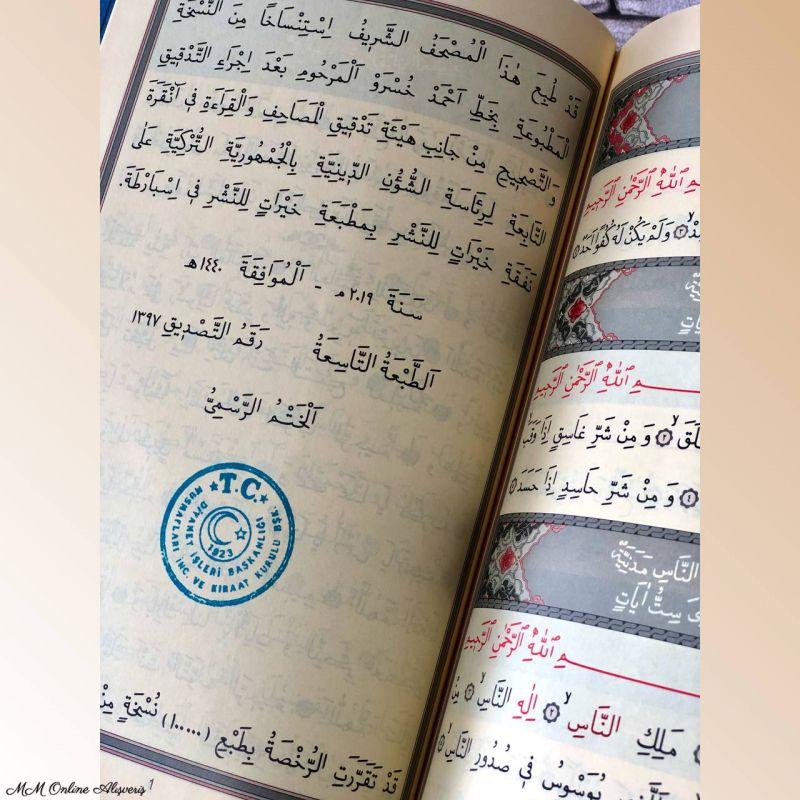 قَدْ طُبِعَ هٰذَا الْمُصْحَفُ الشَّرِيفُ اِسْتِنْسَاخًا مِنَ النُّسْخَةِ
الْمَطْبُوعَةِ بِخَطِّ اَحْمَدْ خُسْرَوْ اَلْمَرْحُومِ بَعْدَ اِجْرَاءِ التَّدْقِيقِ
وَالتَّصْحِيحِ مِنْ جَانِبِ هَيْئَةِ تَدْقِيقِ الْمَصَاحِفِ وَالْقِرَاءَةِ فِى اَنْقَرَةَ
التَّابِعَةِ لِرِئَاسَةِ الشُّؤُنِ الدِّينِيَّةِ بِالْجُمْهُورِيَّةِ التُّرْكِيَّةِ عَلٰى
نَفَقَةِ خَيْرَاتٍ لِلنَّشْرِ بِمَطْبَعَةِ خَيْرَاتٍ لِلنَّشْرِ فِى اِسْبَارْطَةَ.
سَنَةَ ٢٠١٩ م - اَلْمُوَافِقَةَ ١٤٤٠ هـ
اَلطَّبْعَةُ التَّاسِعَةُ رَقَمُ التَّصْدِيقِ ١٣٩٧
اَلْخَتْمُ الرَّسْمِىُّ
T.C.
DİYANET İŞLERİ BAŞKANLIĞI
MUSHAFLARI İNC. VE KIRAAT KURULU BŞK.
1923
قَدْ تَقَرَّرَتِ الرُّخْصَةُ بِطَبْعِ (١٠٠٠٠٠) نُسْخَةٍ مِنْ
اللّٰهِ الرَّحْمٰنِ الرَّحِيمِ
وَلَمْ يَكُنْ لَهُ كُفُوًا اَحَدٌ ٤
بِسْمِ اللّٰهِ الرَّحْمٰنِ الرَّحِيمِ
٢ وَمِنْ شَرِّ غَاسِقٍ اِذَا وَقَبَ
٤ وَمِنْ شَرِّ حَاسِدٍ اِذَا حَسَدَ ٥
النَّاسِ مَدَنِيَّةٌ
سِتُّ اٰيَاتٍ
بِسْمِ اللّٰهِ الرَّحْمٰنِ الرَّحِيمِ
مَلِكِ النَّاسِ ٢ اِلٰهِ النَّاسِ ٣ مِنْ
يُوَسْوِسُ فِى صُدُورِ النَّاسِ ٥
MM Online Alışveriş